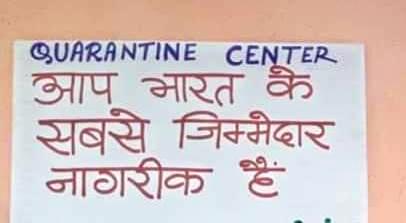 QUARANTINE CENTER
आप भारत के
सबसे जिम्मेदार
नागरीक हैं